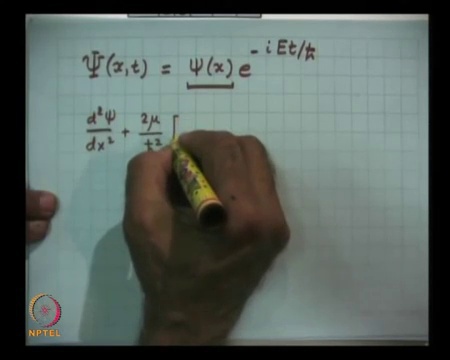 Ψ(x,t) = ψ(x) e^{-iEt/ħ}
d²ψ/dx² + 2μ/ħ² [
NPTEL